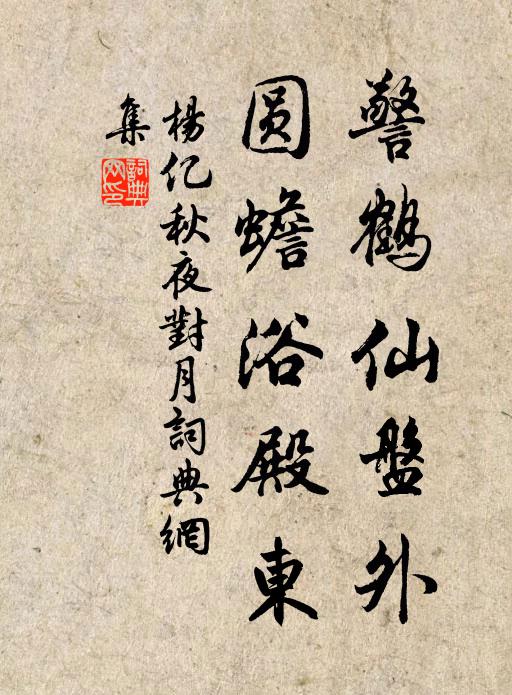 警鶴仙盤外
圓蟾浴殿東
楊亿秋夜對月詞典網
集
詞典网印